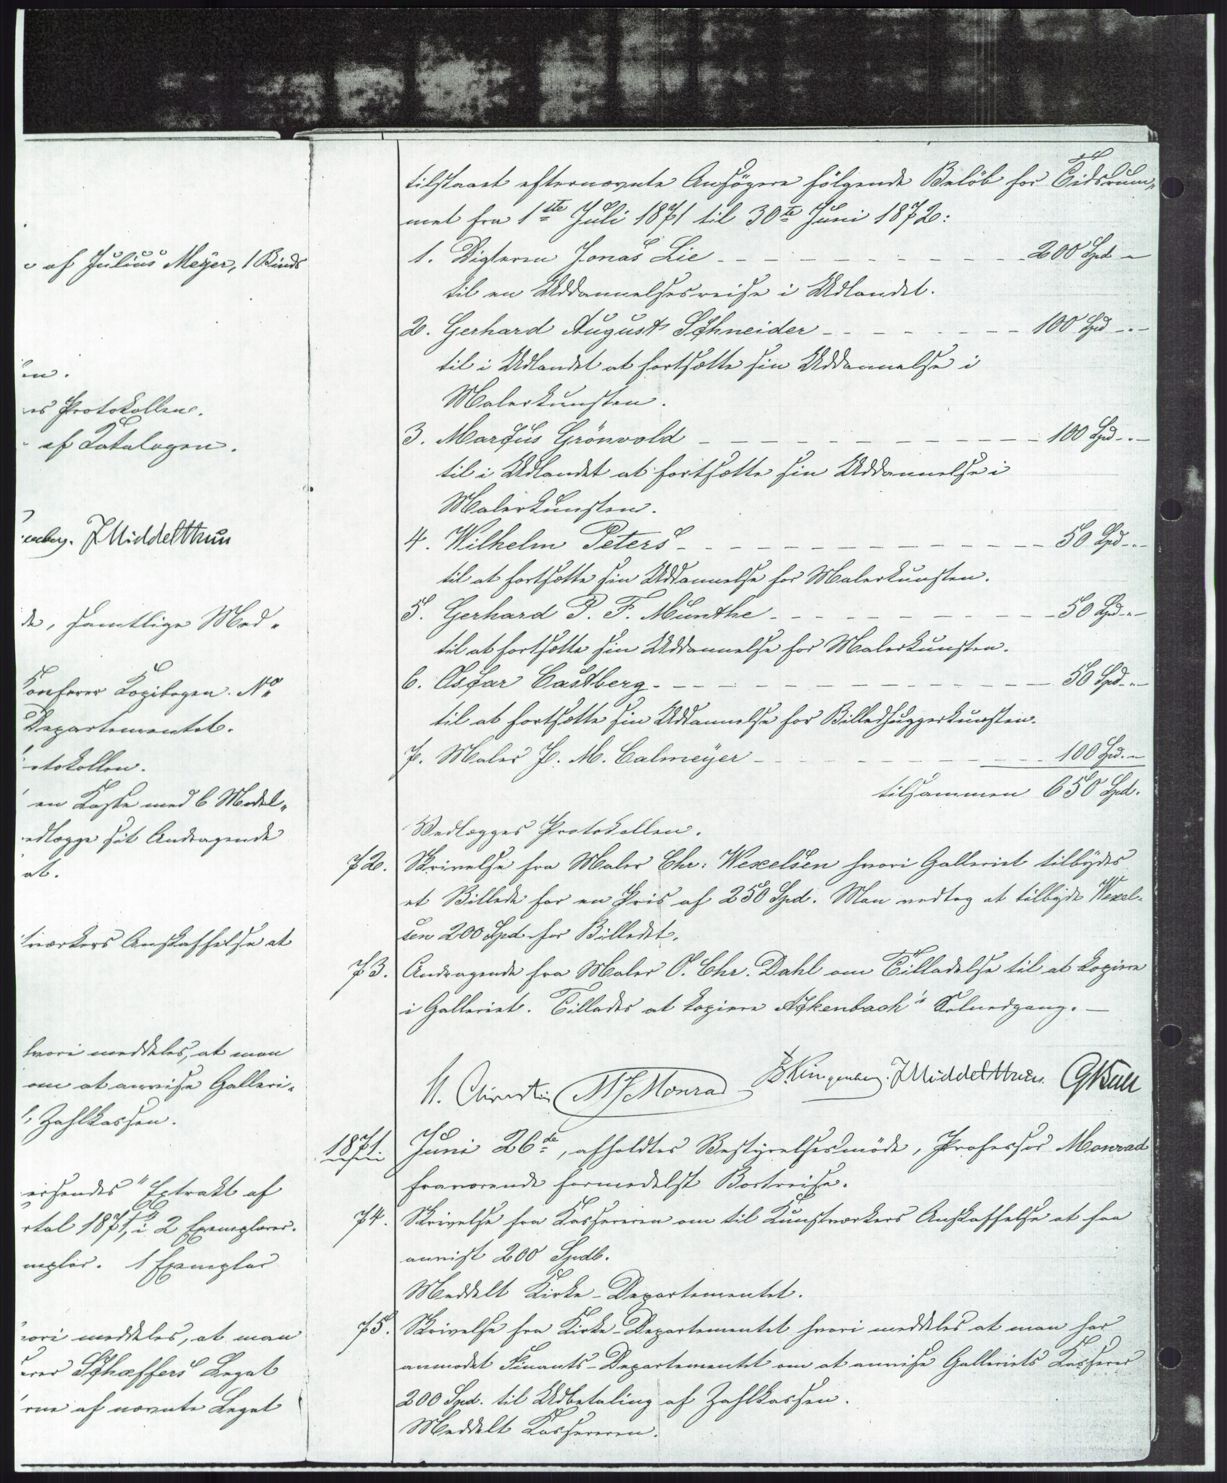 af Julius Meyer, 1 Binds
es Protokollen.
af Katalogen.
JMiddelthun
de, samtlige Med-
Kopibogen. No
Departementet.
en Kasse med 6 Model-
edlægge sit Andragende
at.
værkers Anskaffelse at
hvori meddeles, at man
om at anvise Galleri-
Zahlkassen.
Extrakt af
rtal 1871, i 2 Exemplarer.
1 Exemplar
hvori meddeles, at man
Schæffers Legat
af nævnte Legat
tilstaaet efternævnte Ansøgere følgende Beløb for Tidsrum-
met fra 1ste Juli 1871 til 30te Juni 1872:
1. Digteren Jonas Lie 200 Spd
til en Uddannelsesreise i Udlandet.
2. Gerhard August Schneider 100 Spd
til i Udlandet at fortsætte sin Uddannelse i
Malerkunsten.
3. Marcus Grönvold 100 Spd
til i Udlandet at fortsætte sin Uddannelse i
Malerkunsten.
4. Wilhelm Peters 50 Spd
til at fortsætte sin Uddannelse for Malerkunsten.
5. Gerhard P. F. Munthe 50 Spd
til at fortsætte sin Uddannelse for Malerkunsten.
6. Oscar Castberg 50 Spd
til at fortsætte sin Uddannelse for Billedhuggerkunsten.
7. Maler P. M. Calmeyer 100 Spd.
tilsammen 650 Spd.
Vedlægges Protokollen.
72. Skrivelse fra Maler Chr: Wexelsen hvori Galleriet tilbydes
et Billede for en Pris af 250 Spd. Man vedtog at tilbyde Wexel-
sen 200 Spd for Billedet.
73. Andragende fra Maler S. Chr. Dahl om Tilladelse til at kopiere
i Galleriet. Tillades at kopiere Achenbach's Solnedgang. —
H. Christie MJMonrad JMiddelthun GBull
1871. Juni 26de, afholdtes Bestyrelsesmøde, Professor Monrad
fraværende formedelst Bortreise.
74. Skrivelse fra Kassereren om til Kunstværkers Anskaffelse at faa
anvist 200 Spdl.
Meddelt Kirke-Departementet.
75. Skrivelse fra Kirke-Departementet hvori meddeles at man har
anmodet Finants-Departementet om at anvise Galleriets Kasserer
200 Spd. til Udbetaling af Zahlkassen.
Meddelt Kassereren.